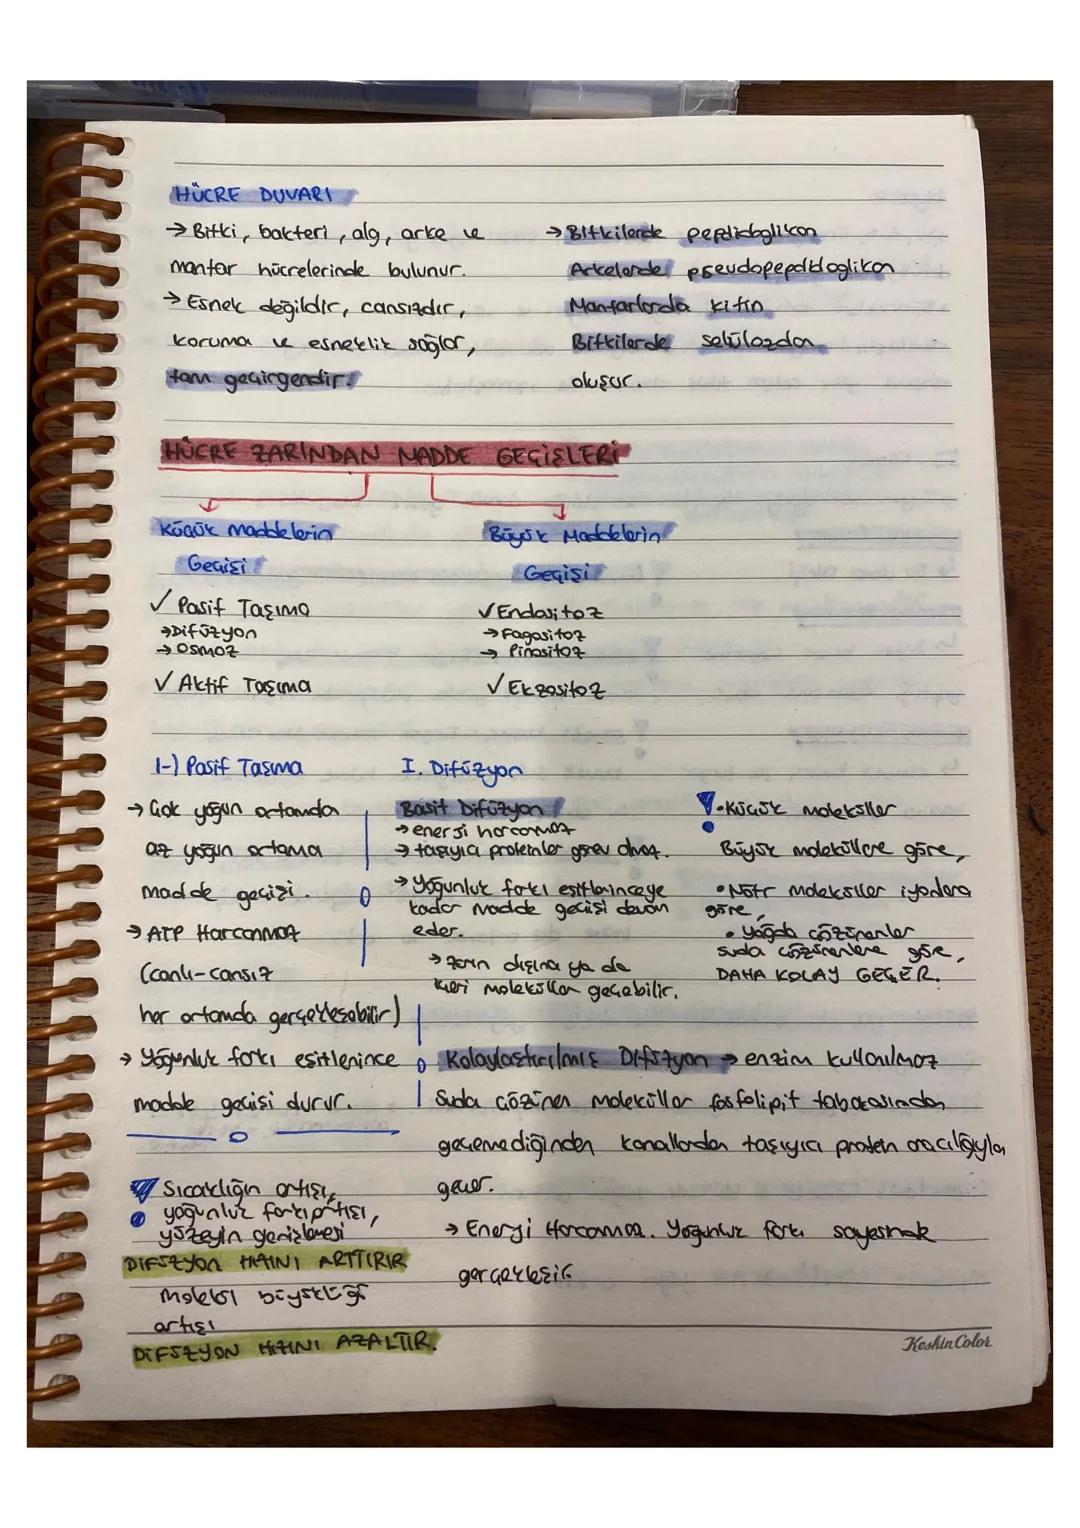 HÜCRE DUVARI
→ Bitki, bakteri, alg, arke ve
mantar hücrelerinde bulunur.
→ Esnek değildir, cansızdır,
koruma ve esneklik sağlar,
tam geçirgendir.
→ Bitkilerde peptidoglikan
Arkelerde pseudopeptidoglikan
Mantarlarda kitin
Bitkilerde selülozdan
oluşur.
HÜCRE ZARINDAN MADDE GEÇİŞLERİ
Küçük maddelerin
Geçişi
✓ Pasif Taşıma
→ Difüzyon
→ Osmoz
✓ Aktif Taşıma
Büyük Maddelerin
Geçişi
✓ Endositoz
→ Fagositoz
→ Pinositoz
✓ Ekzositoz
1-) Pasif Taşıma
→ Çok yoğun ortamda
az yoğun ortama
madde geçişi.
→ ATP Harcanmaz
(canlı-cansız
her ortamda gerçekleşebilir)
→ Yoğunluk farkı eşitlenince
madde geçişi durur.
Sıcaklığın artışı,
yoğunluk farkı artışı,
yüzeyin genişlemesi
DİFÜZYON HIZINI ARTTIRIR
Molekül büyüklüğü
artışı
DİFÜZYON HIZINI AZALTIR.
I. Difüzyon
Basit Difüzyon
→ enerji harcanmaz
→ taşıyıcı proteinler görev almaz.
→ Yoğunluk farkı eşitleninceye
kadar madde geçişi devam
eder.
→ zarın dışına ya da
içeri moleküller geçebilir.
• Küçük moleküller
Büyük moleküllere göre,
• Nötr moleküller iyonlara
göre,
• Yağda çözünenler
suda çözünenlere göre,
DAHA KOLAY GEÇER.
Kolaylaştırılmış Difüzyon → enzim kullanılmaz
Suda çözünen moleküller fosfolipit tabakasından
geçemediğinden kanallardan taşıyıcı protein aracılığıyla
geçer.
→ Enerji Harcanmaz. Yoğunluk farkı sayesinde
gerçekleşir.
Keskin Color